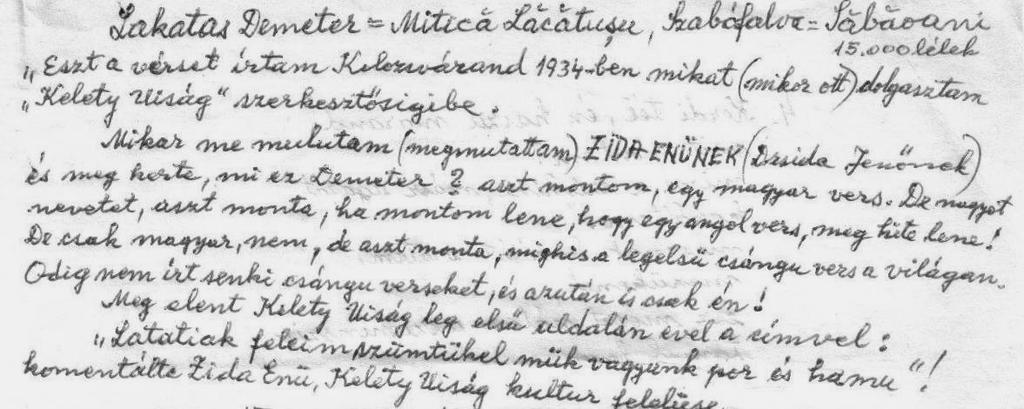 Lakatas Demeter = Mitică Lăcătușu, Szabófalva = Săbăoani
15.000 lélek
„Eszt a vérset írtam Kolozsvárand 1934-ben mikat (mikor ott) dolgasztam
„Kelety Uiság" szerkesztősigibe.
Mikar me mulutam (megmutattam) ZIDA ENÜNEK (Dzsida Jenőnek)
és meg kerte, mi ez Demeter? aszt montom, egy magyar vers. De nagyot
nevetet, aszt monta, ha montom lene, hogy egy angol vers, meg hite lene!
De csak magyar, nem, de aszt monta, mighis a legelsü csángu vers a világan.
Odig nem irt senki csángu verseket, és azután is csak én!
Meg elent Kelety Uiság leg elsü uldalán evel a címvel:
„Látatiak feleim szümtükel mük vagyunk por és hamu"!
komentálte Zida Enü, Kelety Uiság kultur felelüse